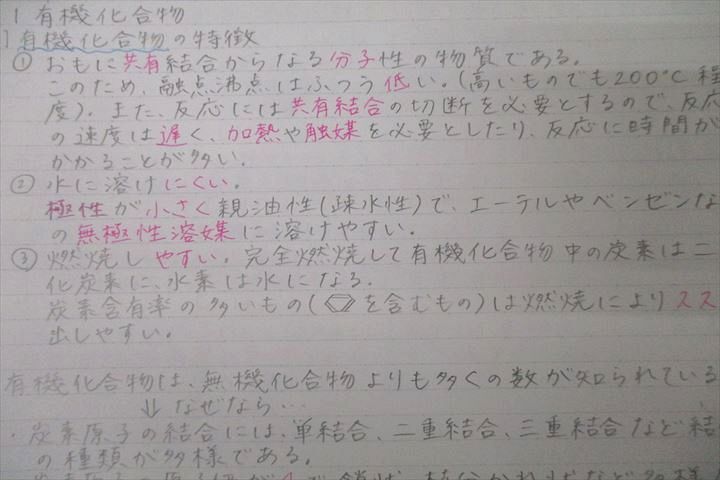 1 有機化合物
1 有機化合物の特徴
① おもに共有結合からなる分子性の物質である。
このため、融点沸点はふつう低い。(高いものでも200℃程
度)。また、反応には共有結合の切断を必要とするので、反応
の速度は遅く、加熱や触媒を必要としたり、反応に時間が
かかることが多い。
② 水に溶けにくい。
極性が小さく親油性(疎水性)で、エーテルやベンゼンな
の無極性溶媒に溶けやすい。
③ 燃焼しやすい。完全燃焼して有機化合物中の炭素は二
化炭素に、水素は水になる。
炭素含有率の多いもの(を含むもの)は燃焼によりスス
出しやすい。
有機化合物は、無機化合物よりも多くの数が知られている
⇓ なぜなら…
・炭素原子の結合には、単結合、二重結合、三重結合など結
の種類が多様である。